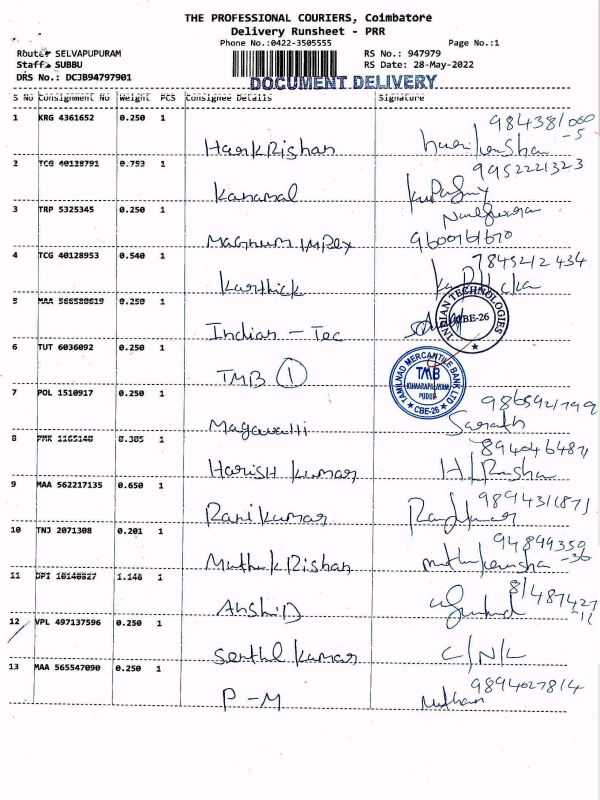 THE PROFESSIONAL COURIERS, Coimbatore
Delivery Runsheet - PRR
Phone No.:0422-3505555
Page No.:1
Route: SELVAPUPURAM
RS No.: 947979
Staff: SUBBU
RS Date: 28-May-2022
DRS No.: DCJB94797901
DOCUMENT DELIVERY
S No Consignment No Weight PCS Consignee Details Signature
1 KRG 4361652 0.250 1
HariKRishan
2 TCG 40128791 0.793 1
9952221323
Kanamal
3 TRP 5325345 0.250 1
MAGNUM IMPEX 9600761670
4 TCG 40128953 0.540 1
7845212434
Karthick
5 MAA 566580619 0.250 1
INDIAN TECHNOLOGIES
CBE-26
Indian - Tec
6 TUT 6036092 0.250 1
TMB 1
TAMILNAD MERCANTILE BANK LTD
TMB
KUMARAPALAYAM
PUDUR
CBE-26
7 POL 1510917 0.250 1
Sarath
8 PMK 1165140 0.305 1
HariSH Kumar
9 MAA 562217135 0.650 1
Rani Kumar
10 TNJ 2071308 0.201 1
MuthukRishan
11 DPI 10140827 1.140 1
12 VPL 497137596 0.250 1
Senthil Kumar C/N/L
13 MAA 565547090 0.250 1
9894027814
P-M